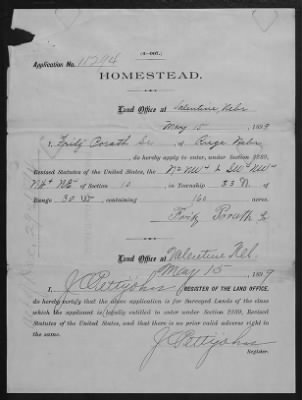 (4—007.)
Application No. 11294
HOMESTEAD.
Land Office at Valentine, Nebr
May 15, 1899
I, Fritz Porath Sr, of Nebr
do hereby apply to enter, under Section 2289,
Revised Statutes of the United States, the N½ NW¼ & SW¼ NW¼
NW¼ NE¼ of Section 10 in Township 33 N of
Range 30 W, containing 160 acres.
Fritz Porath Sr
Land Office at Valentine Neb.
May 15, 1899
I, J C Pettijohn, REGISTER OF THE LAND OFFICE,
do hereby certify that the above application is for Surveyed Lands of the class
which the applicant is legally entitled to enter under Section 2289, Revised
Statutes of the United States, and that there is no prior valid adverse right to
the same.
J C Pettijohn
Register.